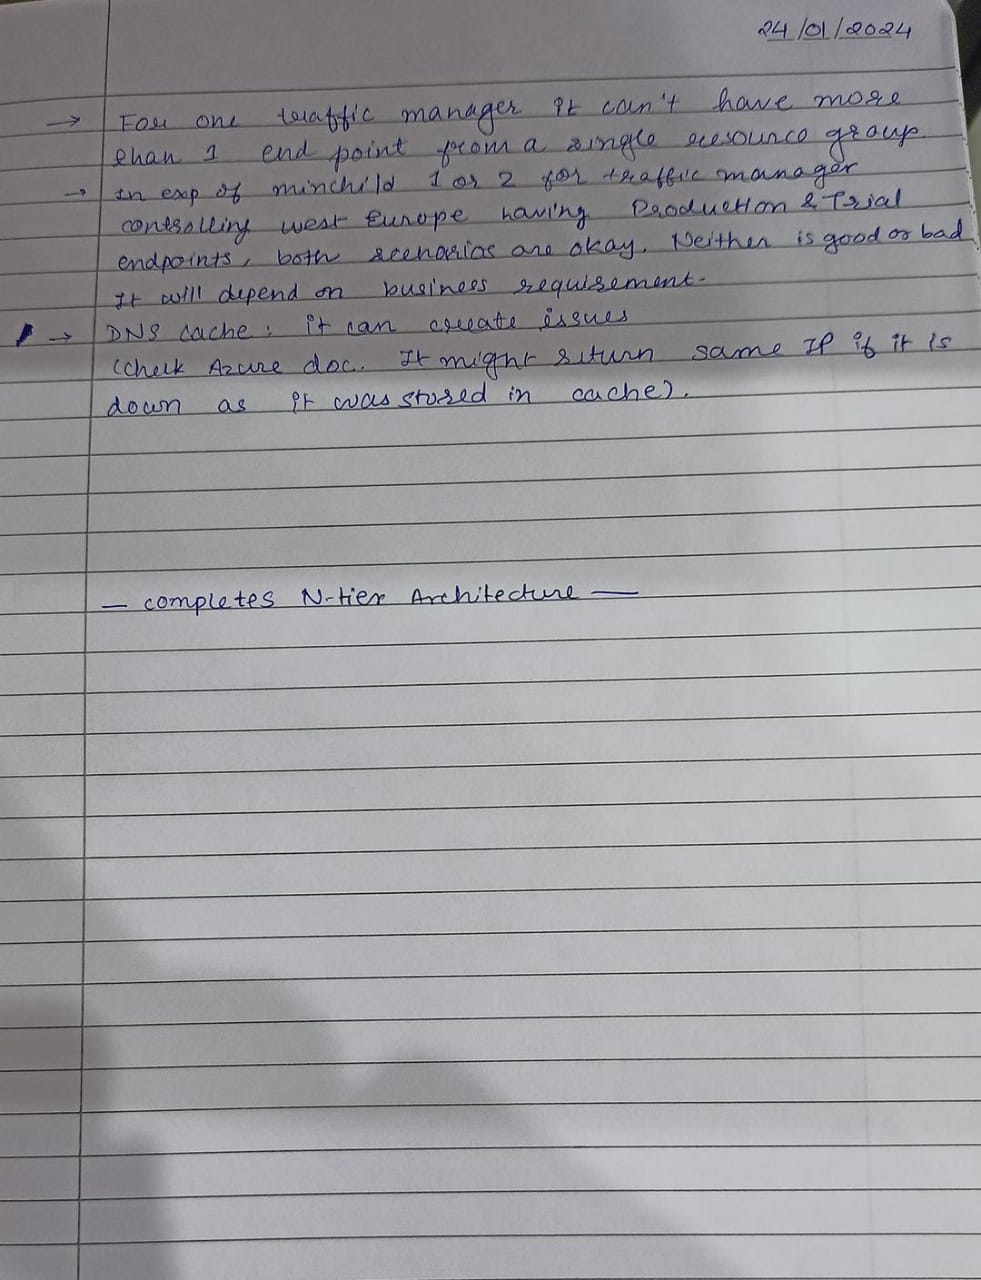 24/01/2024
→ For one traffic manager it can't have more
than 1 end point from a single resource group.
→ In exp of minchild 1 or 2 for traffic manager
controlling west Europe having Production & Trial
endpoints, both scenarios are okay. Neither is good or bad
It will depend on business requirement.
→ DNS cache: it can create issues
(check Azure doc. It might return same IP if it is
down as it was stored in cache).
— completes N-tier Architecture —